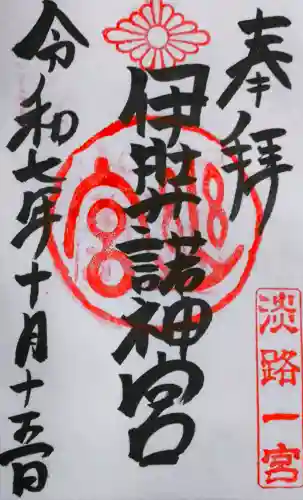 奉拝
淡路一宮
伊弉諾神宮
令和七年十月十五日